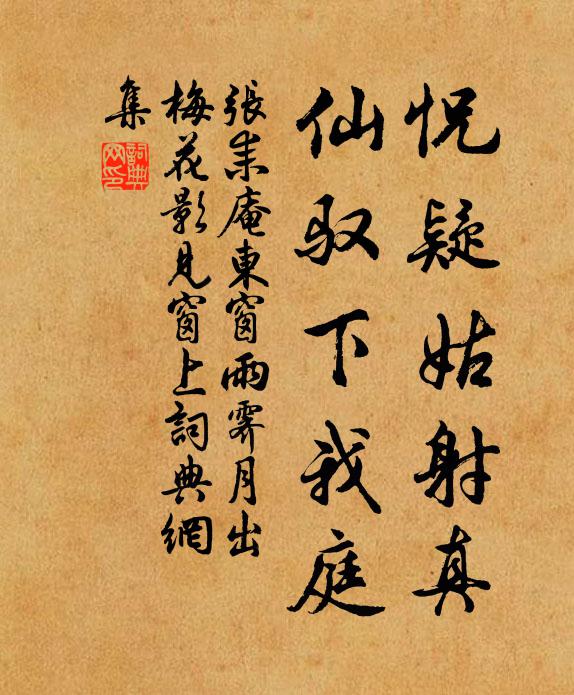 怳疑姑射真
仙驭下我庭
張耒庵東窗雨霽月出
梅花影見窗上詞典網
集
詞典网印